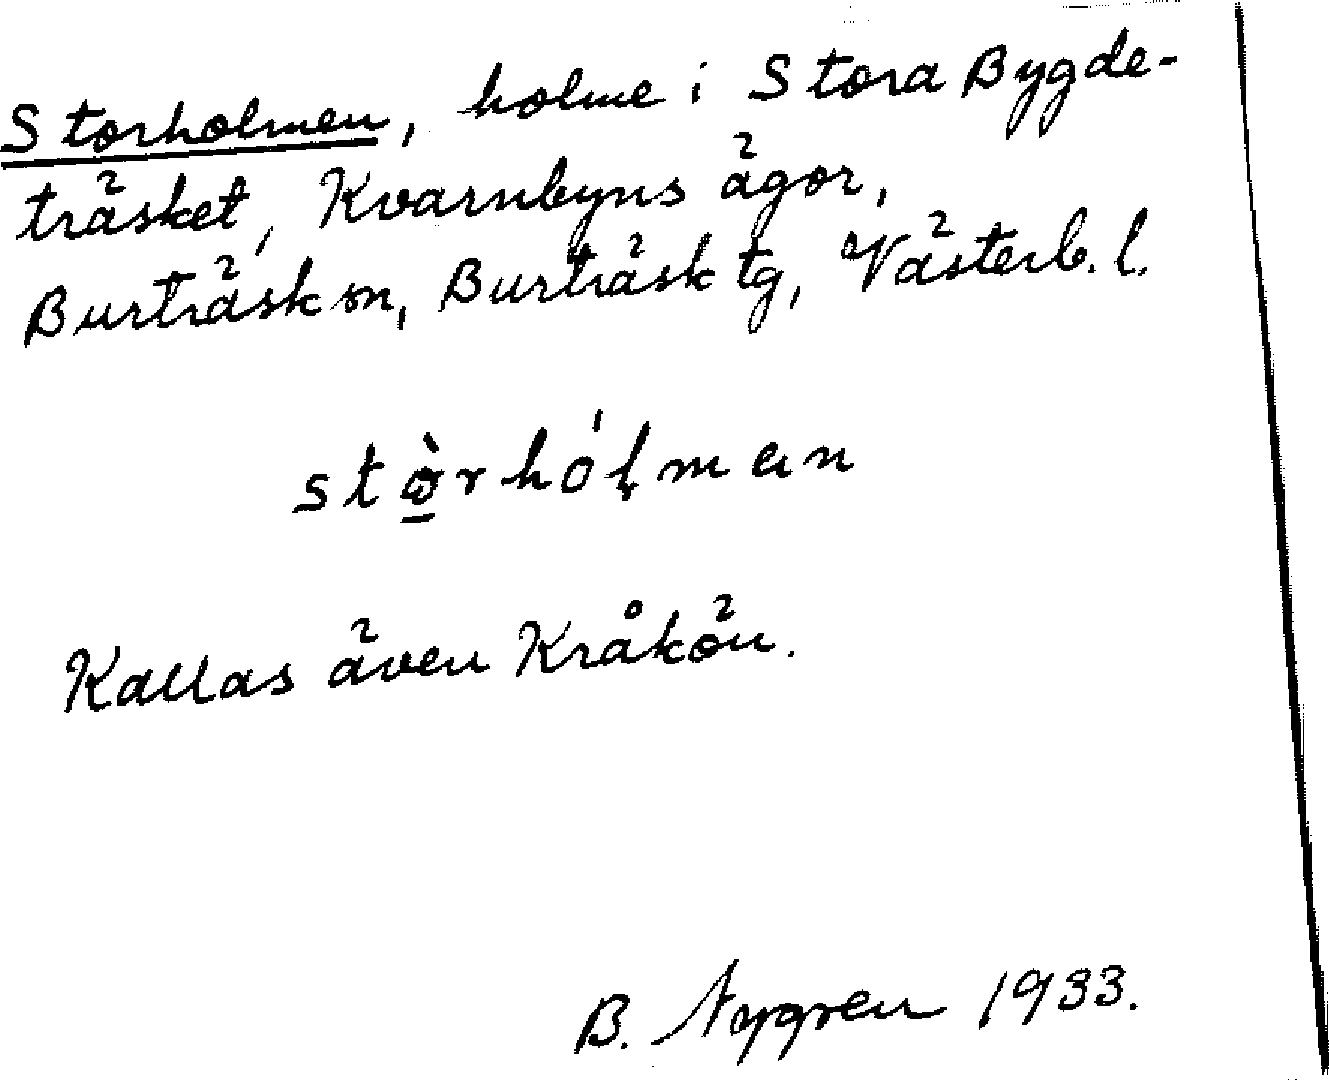 Storholmen, holme i Stora Bygde-
träsket, Kvarnbyns ägor,
Burträsk sn, Burträsk tg, Västerb. l.
stø̀rhóḷman
Kallas även Kråkön.
B. Nygren 1933.